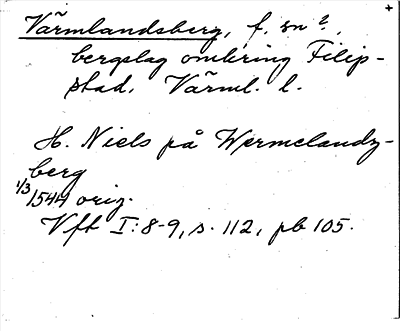 Värmlandsberg, f. sn?,
bergslag omkring Filip-
stad. Värml. l.
H. Niels på Wermelandz-
berg
1/3 1544 orig.
Vft I:8-9, s. 112, pb 105.